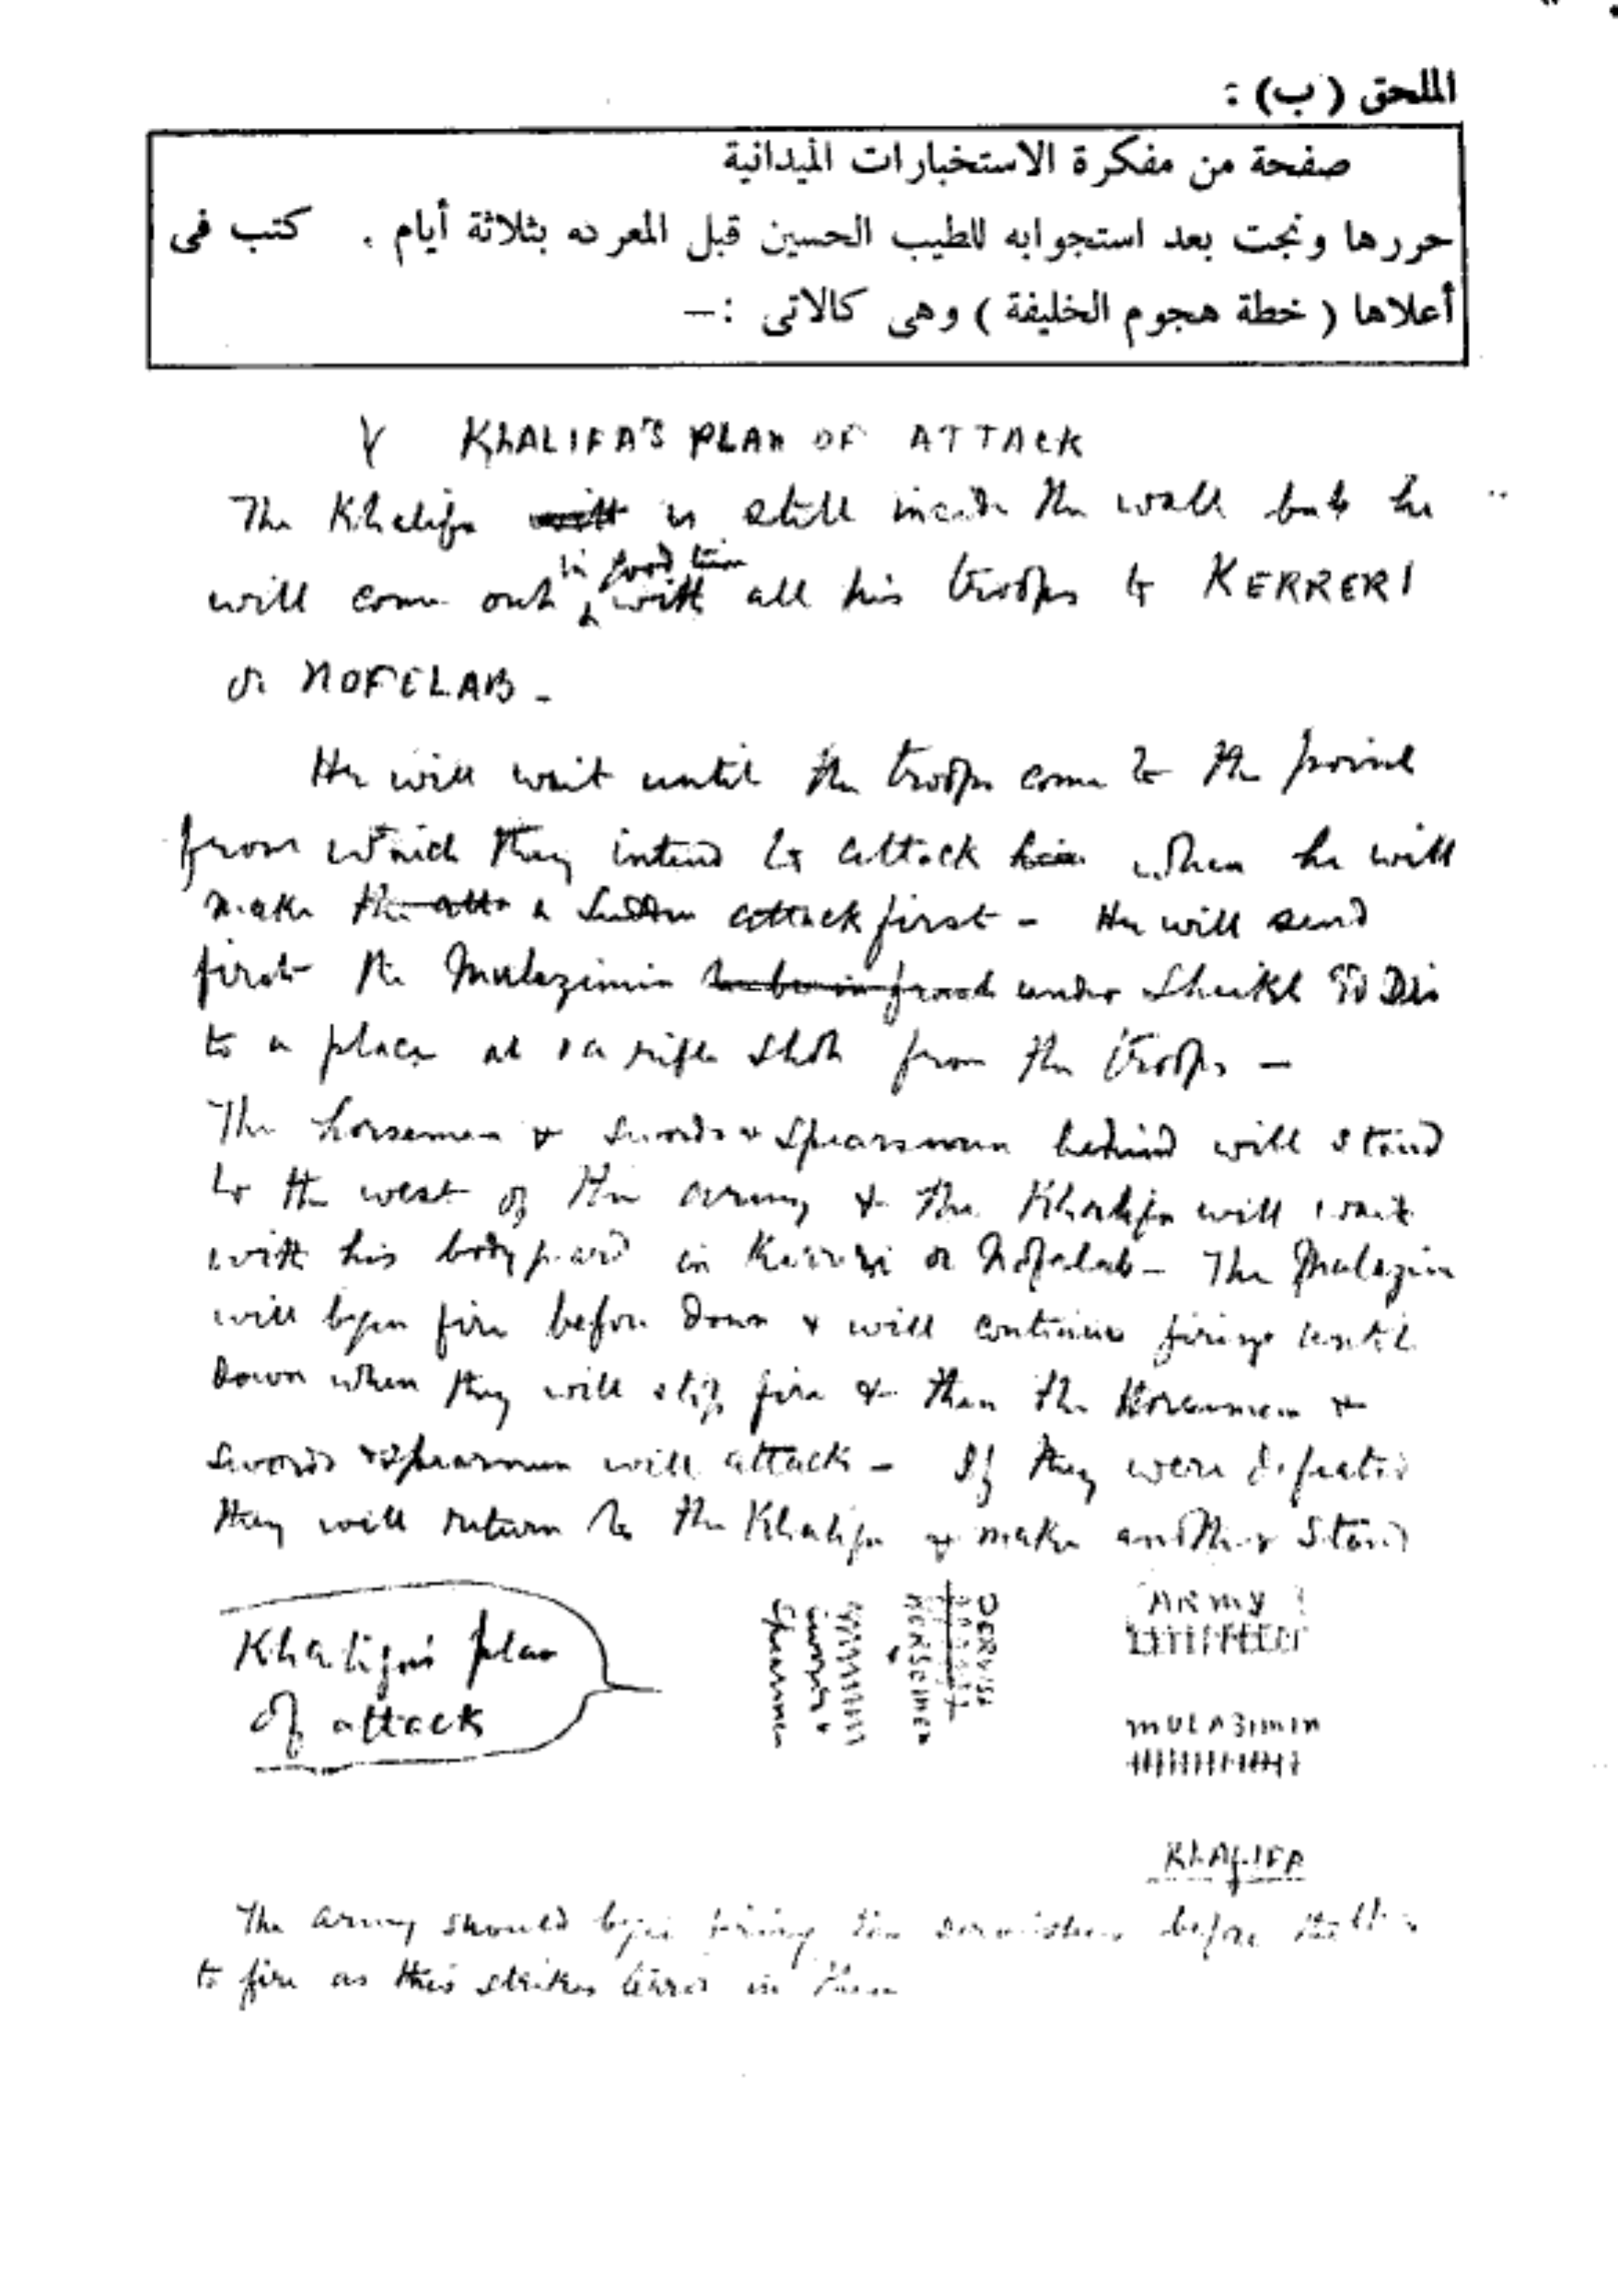 الملحق (ب) :
صفحة من مفكرة الاستخبارات الميدانية
حررها ونجت بعد استجوابه للطيب الحسين قبل المعركه بثلاثة أيام . كتب فى
أعلاها ( خطة هجوم الخليفة ) وهى كالاتى :—
KhALIFA'S PLAN OF ATTACK
The Khalifa will is still inside the wall but he
will come out in good time with all his troops to KERRERI
or NOFELAB -
He will wait until the troops come to the point
from which they intend to attack him when he will
make the atta a sudden attack first - He will send
first the Mulazimin under Sheikh Ed Din
to a place at a rifle shot from the troops —
The horsemen & swords & spearsmen behind will stand
to the west of the army & the Khalifa will wait
with his bodyguard in Kerreri or Nofelab - The Mulazimin
will begin fire before dawn & will continue firing until
dawn when they will stop fire & then the Horsemen &
swords & spearmen will attack - If they were defeated
they will return to the Khalifa & make another stand
Khalifa's plan
of attack
Spearmen
swords &
HORSEMEN
DERVISH
ARMY
MULAZIMIN
KhALIFA
The army should begin firing before
to fire as this strikes terror in them